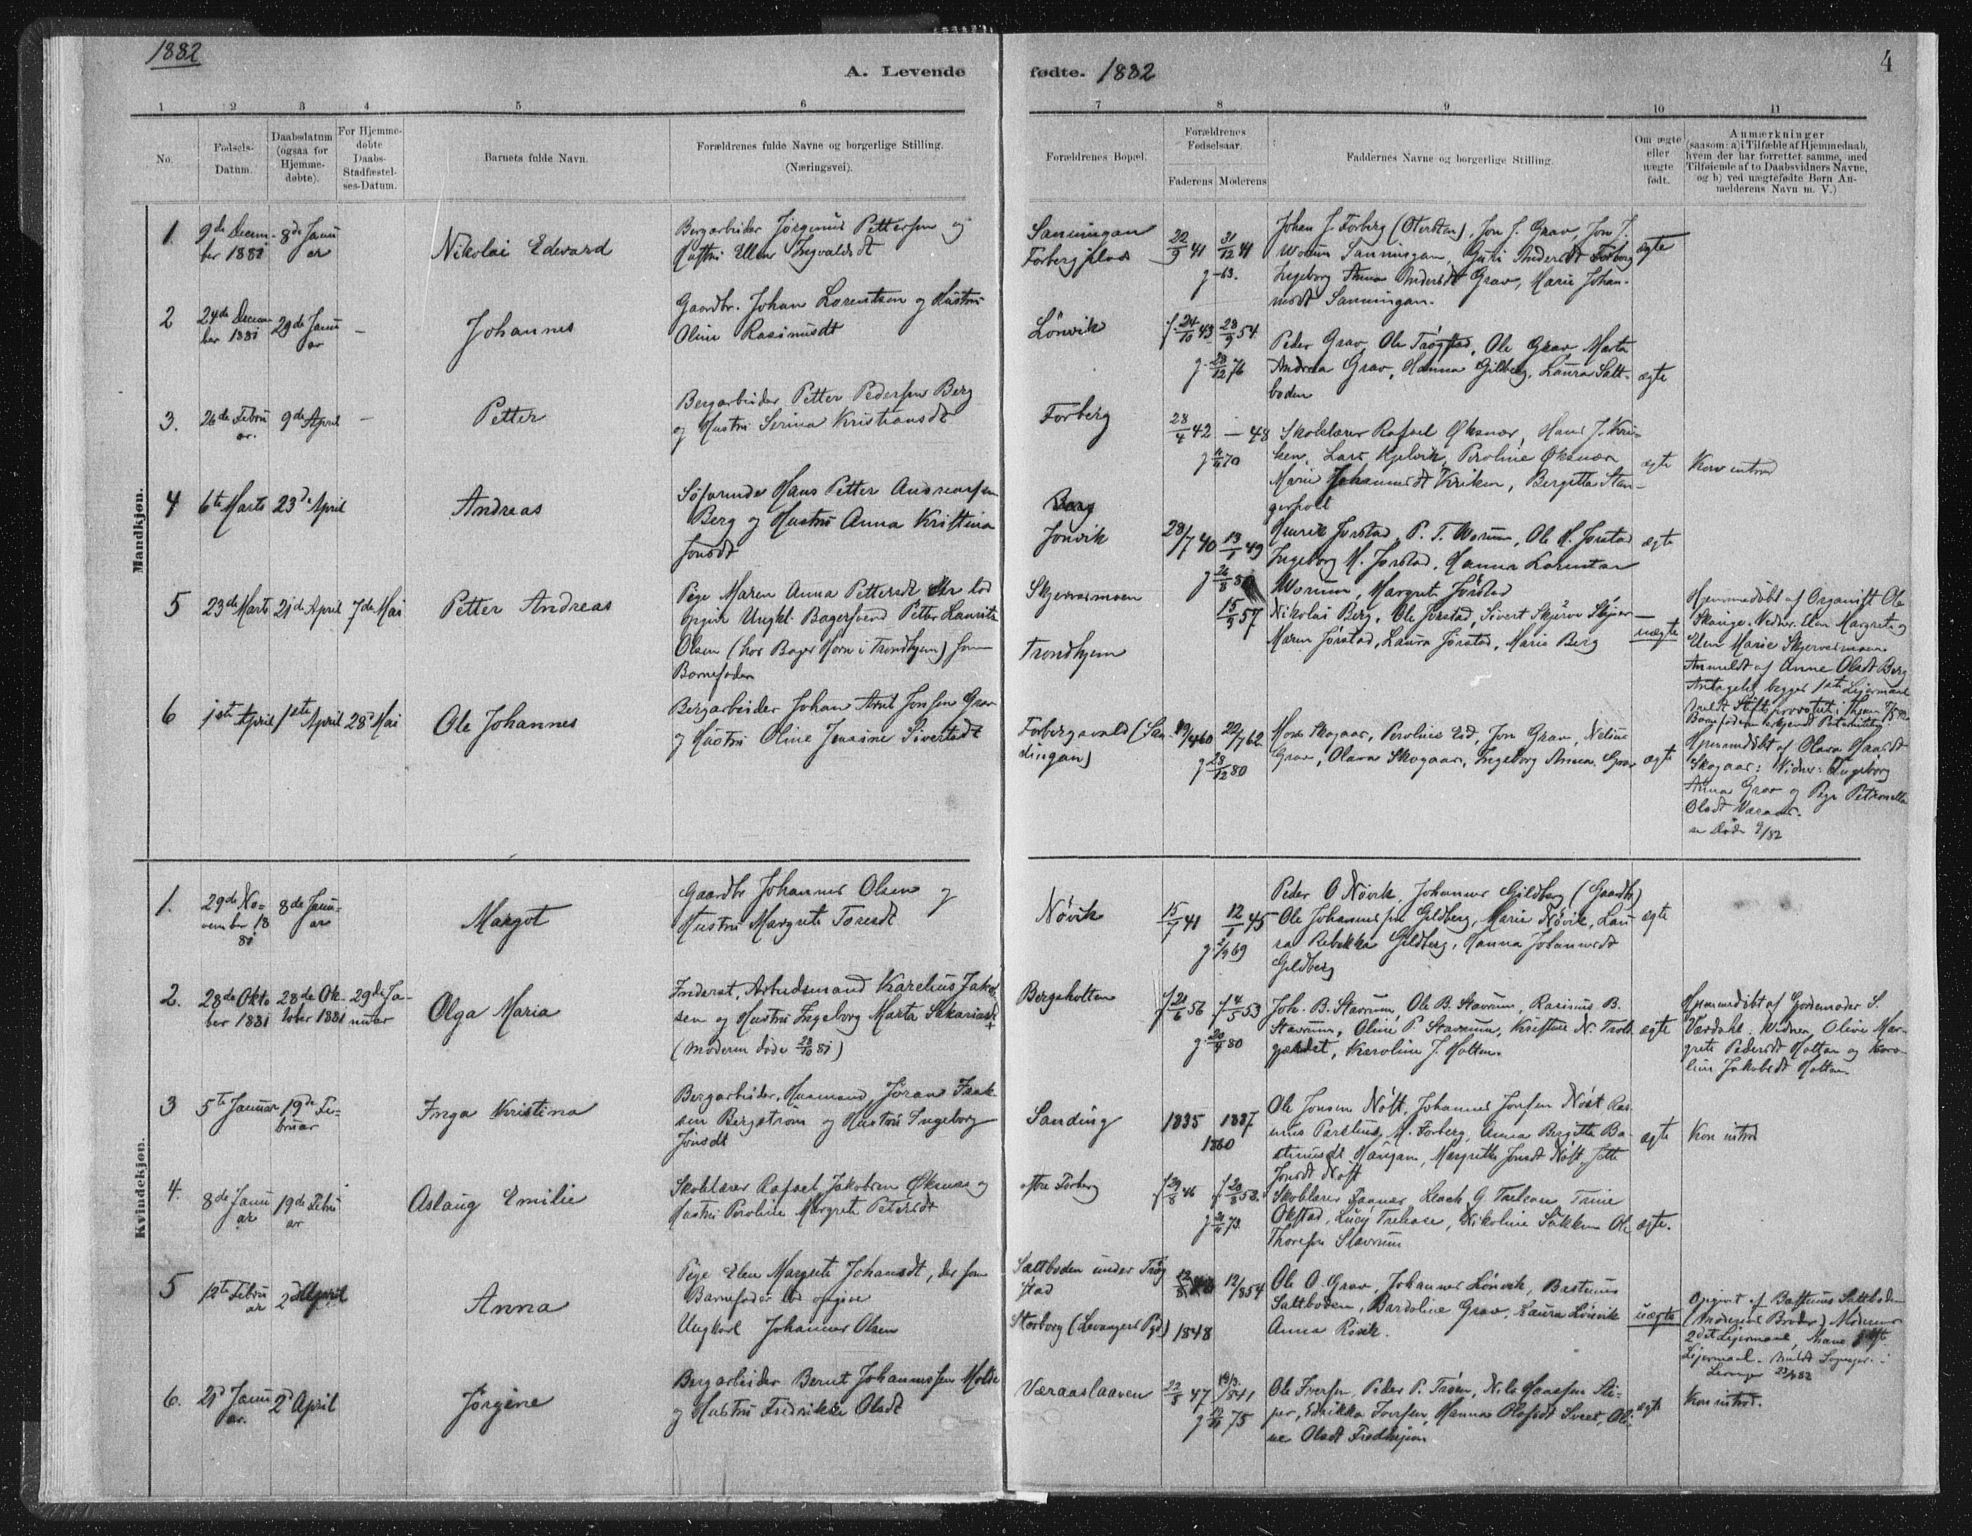 1882
A. Levende
fødte. 1882
4
1
2
3
4
5
6
7
8
9
10
11
No.
Fødsels-
Datum.
Daabsdatum
(ogsaa for
Hjemme-
døbte).
For Hjemme-
døbte
Daabs-
Stadfæstel-
ses-Datum.
Barnets fulde Navn.
Forældrenes fulde Navne og borgerlige Stilling.
(Næringsvei).
Forældrenes Bopæl.
Forældrenes
Fødselsaar.
Faderens
Moderens
Faddernes Navne og borgerlige Stilling.
Om ægte
eller
uægte
født.
Anmærkninger
(saasom: a) i Tilfælde af Hjemmedaab,
hvem der har forrettet samme, med
Tilføiende af to Daabsvidners Navne,
og b) ved uægtefødte Børn An-
melderens Navn m. V.)
Mandkjøn.
1.
9de Decem-
ber 1881
8de Janu
ar
Nikolai Edvard
Bergarbeider Jørginus Pettersen og
Hustru Ellen Ingvaldsdt
Sanningan
Forbergplads
22/9 41
31/12 41
g -63.
Johan J. Forberg (Olerstens), Jon J. Grav, Jon J.
Worum Sanningan, Guri Andersdt Forberg
Ingeborg Anna Andersdt Grav, Marie Johan-
nesdt Sanningan.
ægte
2
24de Decem-
ber 1881
29de Janu
ar
–
Johannes
Gaardbr. Johan Lorentsen og Hustru
Oline Rasmusdt
Lønvik
f. 24/10 43
28/9 54
g. 28/12 76
Peder Grav, Ole Trøgstad, Ole Grav, Marta
Andrea Grav, Hanna Gilberg, Laura Salt-
boden
ægte
3.
26de Febru
ar.
9de April
–
Petter
Bergarbeider Petter Pedersen Berg
og Hustru Serina Kristiansdt
Forberg
28/4 42
– 48
Skolelærer Rafael Øksnes, Hans J. Kvi-
ken, Lars Hjelvik, Peroline Øksnes
Marie Johannesdt Kviken, Bergitta Stan-
ægte
Kone introd
4
6te Marts
23de April
Andreas
Søfarende Hans Petter Andreassen
Berg og Hustru Anna Kristina
Jonsdt
Berg
Jonvik
28/7 40
13/1 49
g 26/8 80
Henrik Jørstad, P. T. Worum, Ole H. Jørstad
Ingeborg M. Jørstad, Hanna Lorentse
Worum, Margrete Jørstad
ægte
5
23de Marts
21de April
7de Mai
Petter Andreas
Pige Maren Anna Pettersdt der lod
opgive Ungkl. Bagersvend Petter Lauritz
Olsen (hos Bager Horn i Trondhjem) som
Barnefader
Skjervesmoen
Trondhjem
15/9 57
Nikolai Berg, Ole Jørstad, Sivert Skjerve
Maren Jørstad, Laura Jørstad, Marie Berg
uægte
Hjemmedøbt af Organist Ole
Skange. Vidner. Elen Margrete og
Elen Marie Skjervesmoen
Anmeldt af Anne Olsdt Berg
Antagelig begges 1ste Leiermaal
6
1ste April
1ste April
28de Mai
Ole Johannes
Bergarbeider Johan Arnt Jonsen Grav
og Hustru Oline Jensine Sivertsdt
Forbergsvald (San
dingan)
22/7 62
g 28/12 80
Mons Skogaas, Peroline Eid, Jon Grav, Neline
Grav, Olava Skogaas, Ingeborg Anna Grav
ægte
Hjemmedøbt af Olava Hansdt
Skogaas: Vidner: Ingeborg
Anna Grav og Pige Petronella
Olsdt
Kvindekjøn.
1.
29de No-
vember 18
81
8de Janu-
ar
Margot
Gaardbr Johannes Olsen og
Hustru Margrete Toresdt
Nøvik
15/7 41
12/1 45
Peder O Nøvik, Johannes Gildberg (Gaardb)
Ole Johannessen Gildberg, Marie Nøvik, Lau
ra Rebekka Gildberg, Hanna Johannesdt
Gildberg
ægte
2.
28de Okto
ber 1881
28de Ok-
tober 1881
29de Ja-
nuar
Olga Maria
Inderst, Arbeidsmand Karelius Jakob
sen og Hustru Ingeborg Marta Sakariasdt
(Moderen døde 28/10 81)
Bergsholten
f 21/6 56
f 4/5 53
g 20/4 80
Joh. B. Stavrum, Ole B. Stavrum, Rasmus B.
Stavrum, Oline P. Stavrum, Kristine N. Trøb-
gjærdet, Karoline J. Holten.
ægte
Hjemmedøbt af Gjordemoder S.
Værdahl: Vidner, Oline Mar-
grete Pedersdt Holten og Karo-
line Jakobsdt Holten
3
5te Januar
19de Fe-
bruar
Inga Kristina
Bergarbeider, Husmand Jøran Isak-
sen Bergstrøm og Hustru Ingeborg
Jonsdt
Sanding
1835
1837
1860
Ole Jonsen Nøst, Johannes Jonsen Nøst Ras-
mus M. Forberg, Anna Bergitta Ba-
Haugan, Margrethe Jonsdt Nøst, Jette
Jonsdt Nøst
ægte
Kon introd
4.
8de Janu
ar
19de Febru
ar
Aslaug Emilie
Skolelærer Rafael Jakobsen Øksnes og
Hustru Peroline Margrete Petersdt
østre Forberg
f 29/8 46
f 20/8 53.
g 21/6 73.
Skolelærer Faanes, Leach G. Trelease, Trine
Okstad, Lucy Trelease, Nikoline Sakken Ole
Thoresen Stavrum
ægte.
5
12te Febru
ar
2d April
Anna
Pige Elen Margrete Johansdt, der som
Barnefader lod opgive
Ungkarl Johannes Olsen
Saltboden under Trøg
stad
Storborg (Levanger Pgd)
1848
12/8 54
Ole O. Grav, Johannes Lønvik, Bastinus
Saltboden, Bardoline Grav, Laura Lønvik
Anna Røvik.
uægte
Opgivet af Bastinus Saltboden
(Moderens Broder) Moderens
2det Leiermaal,
Leiermaal.
6.
21d Janu
ar.
2d April
Jørgine
Bergarbeider Bernt Johannessen Molde
og Hustru Fredrikke Olsdt
Væraaslaaven
22/8 47
g 75
Ole Iversen, Peder P. Trøen, Nils Hanssen Sti-
per, Edrikka Iversen, Hanna Olafsdt Sveet, Oli-
ne Olsdt
ægte
Kon introd.